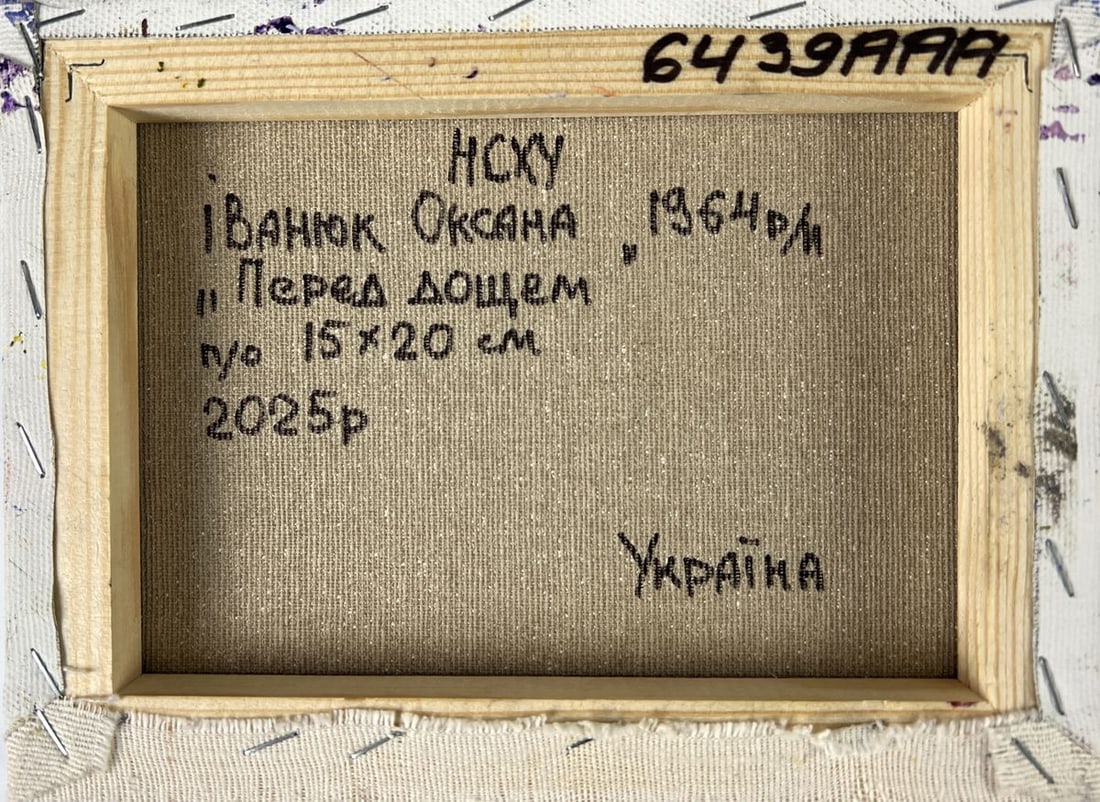 6439AAA
НСХУ
Іванюк Оксана 1964р/н
„Перед дощем"
п/о 15×20 см
2025р
Україна